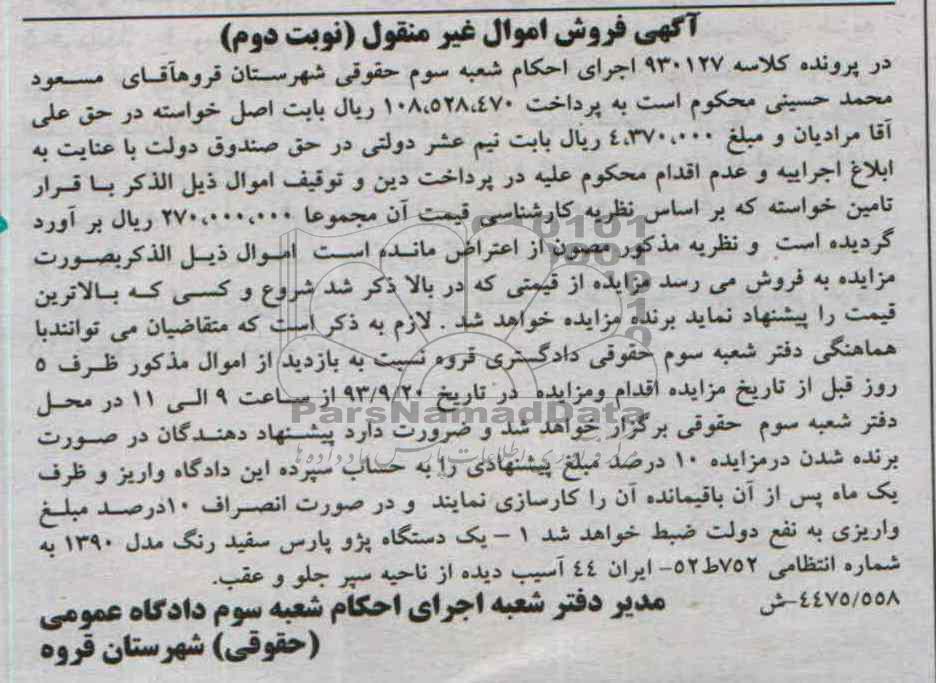 آگهی فروش اموال غیر منقول (نوبت دوم)
در پرونده کلاسه ٩٣٠١٢٧ اجرای احکام شعبه سوم حقوقی شهرستان قروهآقای مسعود
محمد حسینی محکوم است به پرداخت ١٠٨،٥٢٨،٤٧٠ ریال بابت اصل خواسته در حق علی
آقا مرادیان و مبلغ ٤،٣٧٠،٠٠٠ ریال بابت نیم عشر دولتی در حق صندوق دولت با عنایت به
ابلاغ اجراییه و عدم اقدام محکوم علیه در پرداخت دین و توقیف اموال ذیل الذکر با قرار
تامین خواسته که بر اساس نظریه کارشناسی قیمت آن مجموعا ٢٧٠،٠٠٠،٠٠٠ ریال بر آورد
گردیده است و نظریه مذکور مصون از اعتراض مانده است اموال ذیل الذکربصورت
مزایده به فروش می رسد مزایده از قیمتی که در بالا ذکر شد شروع و کسی که بالاترین
قیمت را پیشنهاد نماید برنده مزایده خواهد شد . لازم به ذکر است که متقاضیان می توانندبا
هماهنگی دفتر شعبه سوم حقوقی دادگستری قروه نسبت به بازدید از اموال مذکور ظرف ٥
روز قبل از تاریخ مزایده اقدام ومزایده در تاریخ ٩٣/٩/٢٠ از ساعت ٩ الی ١١ در محل
دفتر شعبه سوم حقوقی برگزار خواهد شد و ضرورت دارد پیشنهاد دهندگان در صورت
برنده شدن درمزایده ١٠ درصد مبلغ پیشنهادی را به حساب سپرده این دادگاه واریز و ظرف
یک ماه پس از آن باقیمانده آن را کارسازی نمایند و در صورت انصراف ١٠درصد مبلغ
واریزی به نفع دولت ضبط خواهد شد ١ – یک دستگاه پژو پارس سفید رنگ مدل ١٣٩٠ به
شماره انتظامی ٧٥٢ط٥٢- ایران ٤٤ آسیب دیده از ناحیه سپر جلو و عقب.
٤٤٧٥/٥٥٨-ش
مدیر دفتر شعبه اجرای احکام شعبه سوم دادگاه عمومی
(حقوقی) شهرستان قروه
ParsNamadData